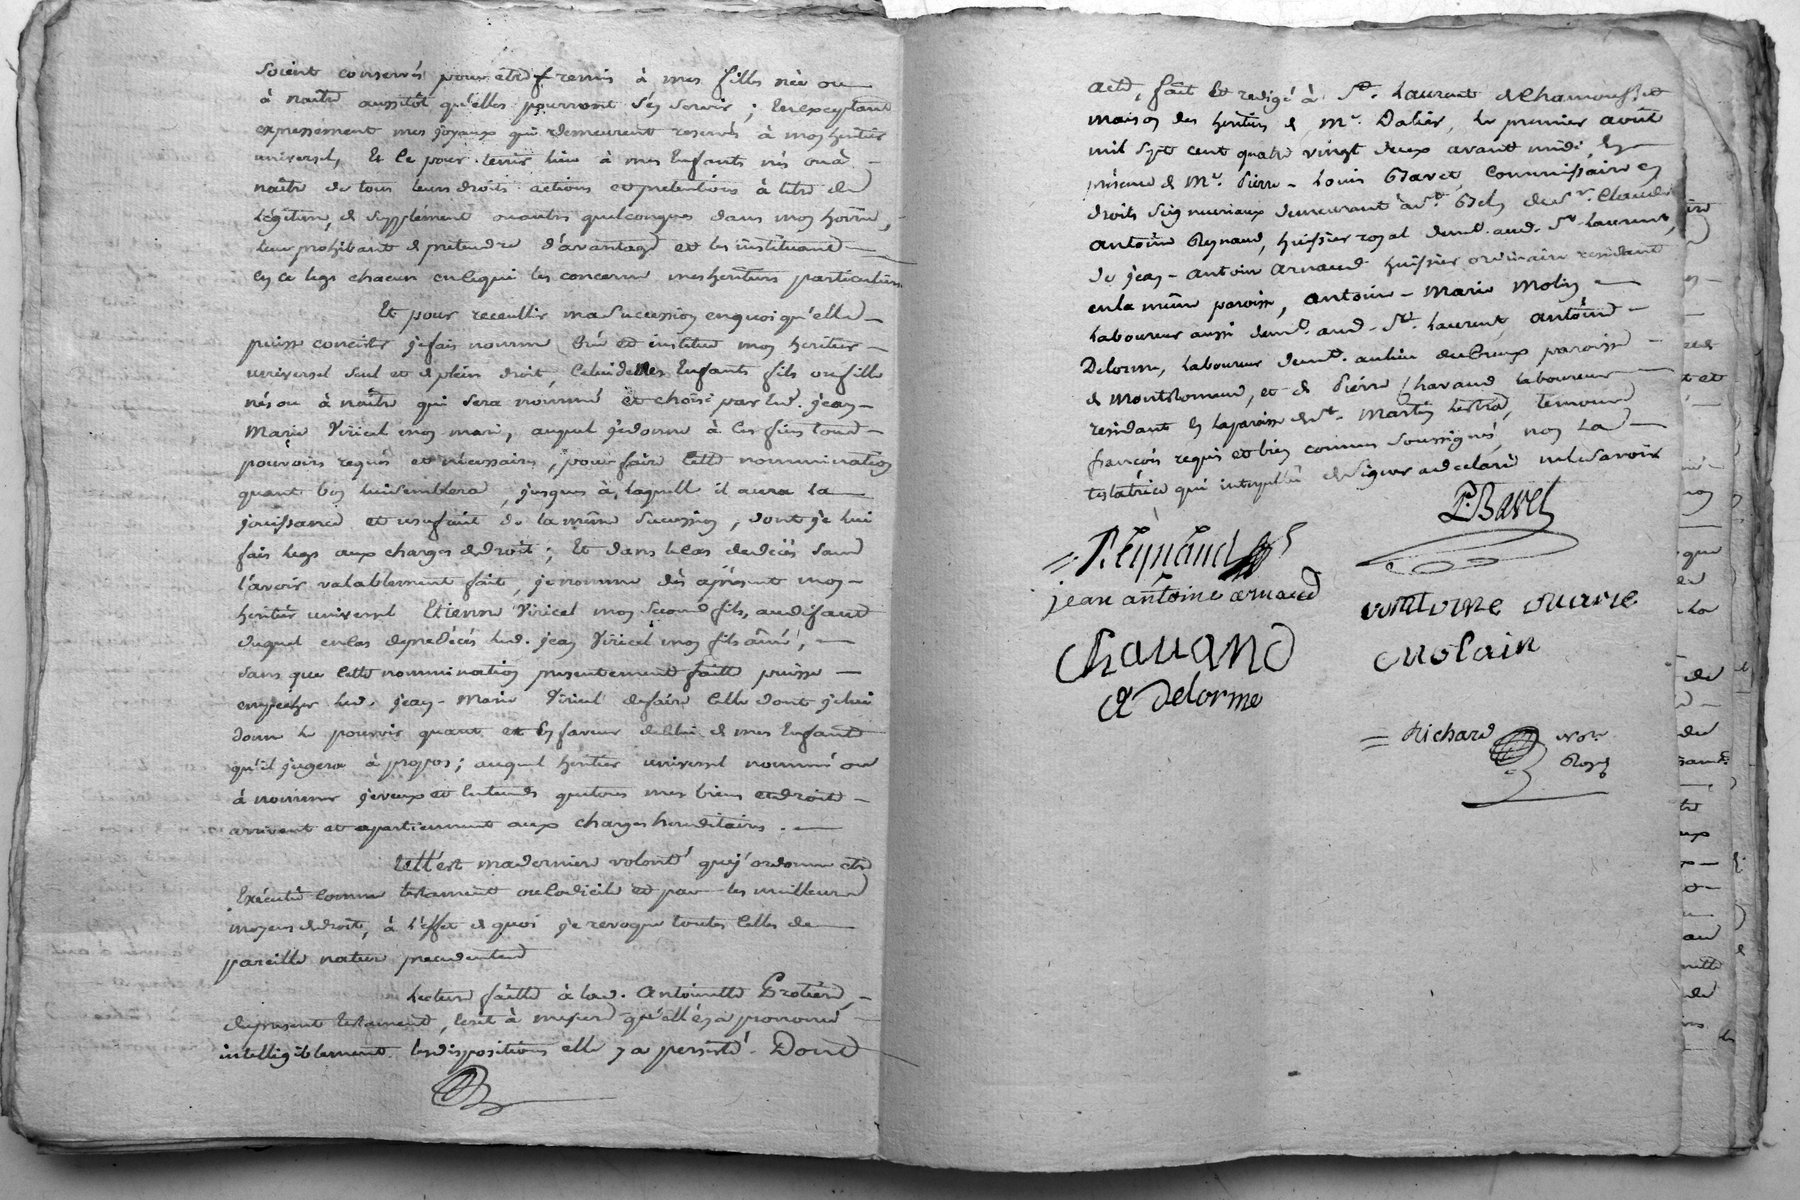 soient conservés pour etre remis à mes filles née ou
à naitre aussitôt qu'elles pourront s'en servir; en exceptant
expressement mes joyaux qui demeurent reservés à mon heritier
universel, Et ce pour tenir lieu à mes Enfants nés ou à
naitre de tous leurs droits actions et pretentions à titre de
Légitime, de supplément ou autres quelconques dans mon hoirie,
leur prohibant de pretendre d'avantage et les instituant
en ce legs chacun en ce qui les concerne mes heritiers particuliers
Et pour receuillir ma Succession en quoi qu'elle
puisse concister je fais nomme Crée et institue mon heritier
universel seul et de plein droit, Celui de mes Enfants fils ou fille
nés ou à naitre qui sera nommé et choisi par led. jean
Marie Viricel mon mari, auquel je donne à ces fins tous
pouvoirs requis et nécessaires, pour faire cette nommination
quant bon lui semblera, jusques à laquelle il aura la
jouissance et usufruit de la même Succession, dont je lui
fais legs aux charges de droit; Et dans le cas de decès sans
l'avoir valablement fait, je nomme dès apresent mon
heritier universel Etienne Viricel mon second fils, au difaut
duquel en cas de predécès led. jean Viricel mon fils aîné,
sans que cette nommination presentement faitte puisse
empecher led. jean-Marie Viricel de faire celle dont je lui
donne le pouvoir quant et En faveur de celui de mes Enfants
qu'il jugera à propos; auquel heritier universel nommé ou
à nommer je veux et Entends que tous mes biens et droits
arrivent et apartiennent aux charges hereditaires.
Cett'est ma derniere volonté que j'ordonne etre
Exécutée comme testament ou codicile et par les meilleurs
moyens de droit, à l'effet de quoi je revoque toutes celles de
pareille nature precedentes
Lecture faitte à lad. Antoinette Protière,
du present testament, écrit à mesure qu'elle en a prononcé
intelligiblement les dispositions elle y a persisté. Dont
acte, fait et redigé à St. Laurent de Chamousset
maison des heritiers de Mr. Dalier, le premier août
mil sept cent quatre vingt deux avant midi, En
présence de Mr. Pierre-Louis Bavet, Commissaire en
droits seigneuriaux demeurant de Sr. Claude
antoine Reynaud, huissier royal demt. aud. St. Laurent,
de jean-antoine arnaud huissier ordinaire residant
en la même paroisse, antoine-Marie Molin
Laboureur aussi demt. aud. St. Laurent, antoine
Delorme, laboureur demt. au lieu du Creux, paroisse
de Montromand, et de Pierre Chavand laboureur
residant En la paroisse de St. Martin Lestra, temoins
françois requis et bien connus soussignés, non la
testatrice qui interpellée de signer a declaré ne le savoir
P. Bavet
Reynaud
jean antoine arnaud
antoine marie
molain
Chavand
a Delorme
Richard Nore.
Royal